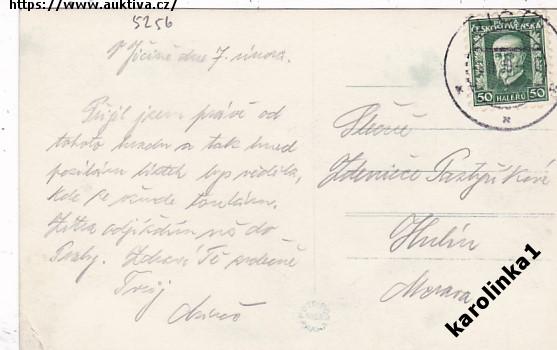 https://www.auktiva.cz/
5256
V Jičíně dne 7. února.
ČESKOSLOVENSKÁ
50 HALÉŘŮ 50
Přijel jsem právě od
tohoto a tak hned
posílám lístek bys věděla,
kde se všude toulám.
Zítra odjíždím už do
Prahy. Zdraví Tě srdečně
Tvůj
Slečně
Zdeničce
Hulín
Morava
karolinka1